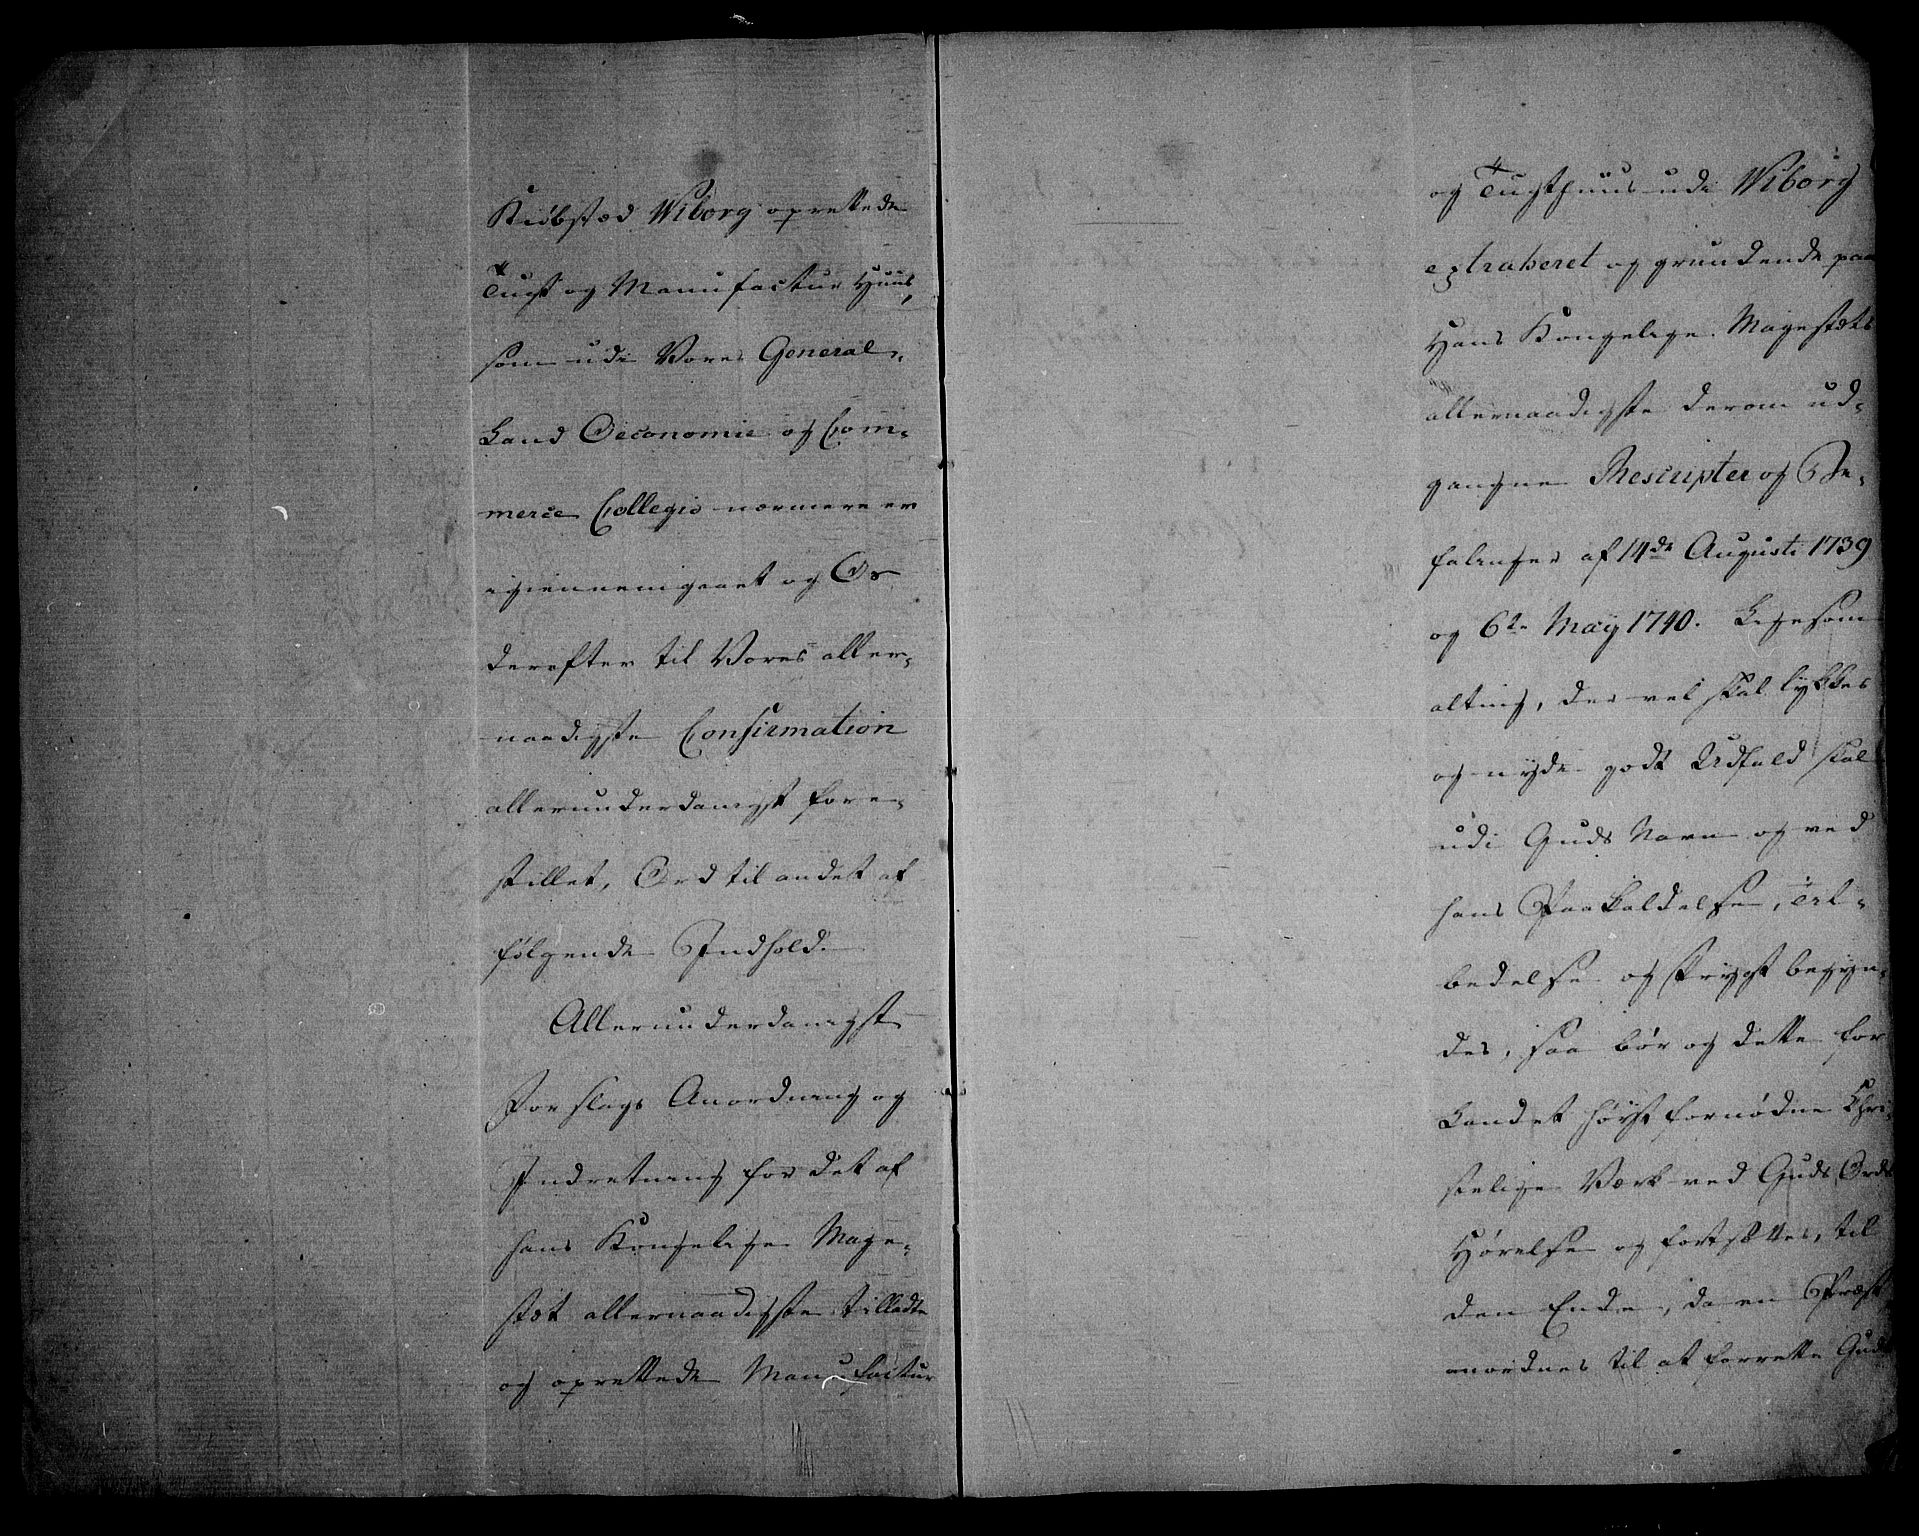 Kiøbstæd Wiborg oprettede
Tugt og Manufactur Huus,
som udi Vores General-
Land Oeconomie og Com-
merce Collegio nærmere er
igiennemgaaet og Os
derefter til Vores aller-
naadigste Confirmation
allerunderdanigst fore-
stillet, Ord til andet af
følgende Indhold.
Allerunderdanigst
Forslags Anordning og
Indretning for det af
hans Kongelige Maye-
stæt allernaadigste tilladte
og oprettede Manufactur
og Tugthuus udi Wiborg
extraheret og grundende paa
Hans Kongelige Mayestæts
allernaadigste derom ud-
gangne Rescripter og Be-
falinger af 14de Augusti 1739
og 6te May 1740. Ligesom
alting, der vel skal lykkes
og nyde godt Udfald skal
udi Guds Navn og ved
hans Paakaldelse, Til-
bedelse og Frygt begyn-
des, saa bør og dette for
Landet høyst fornødne Chri-
stelige Værk ved Guds Ords
Hørelse og fortsættes, til
den Ende, da en Præst
anordnes til at forrette Guds